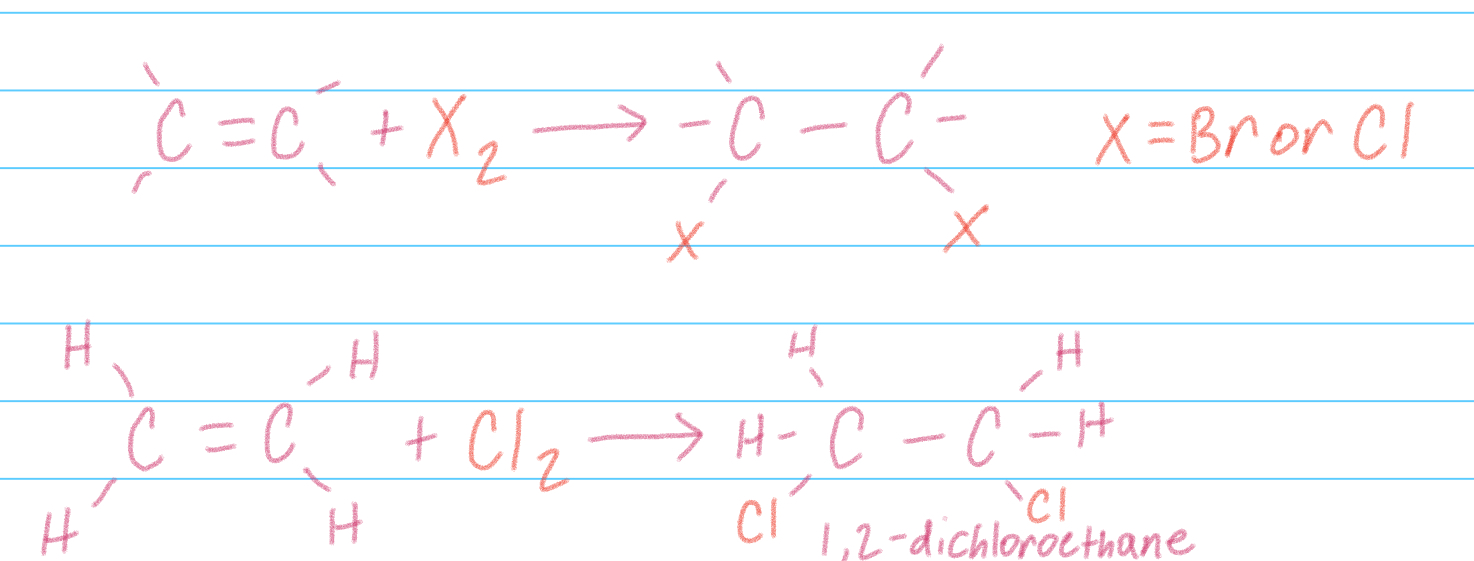 C = C + X₂ ⟶ - C - C - X = Br or Cl
X X
H H H H
C = C + Cl₂ ⟶ H - C - C - H
H H Cl Cl
1,2-dichloroethane